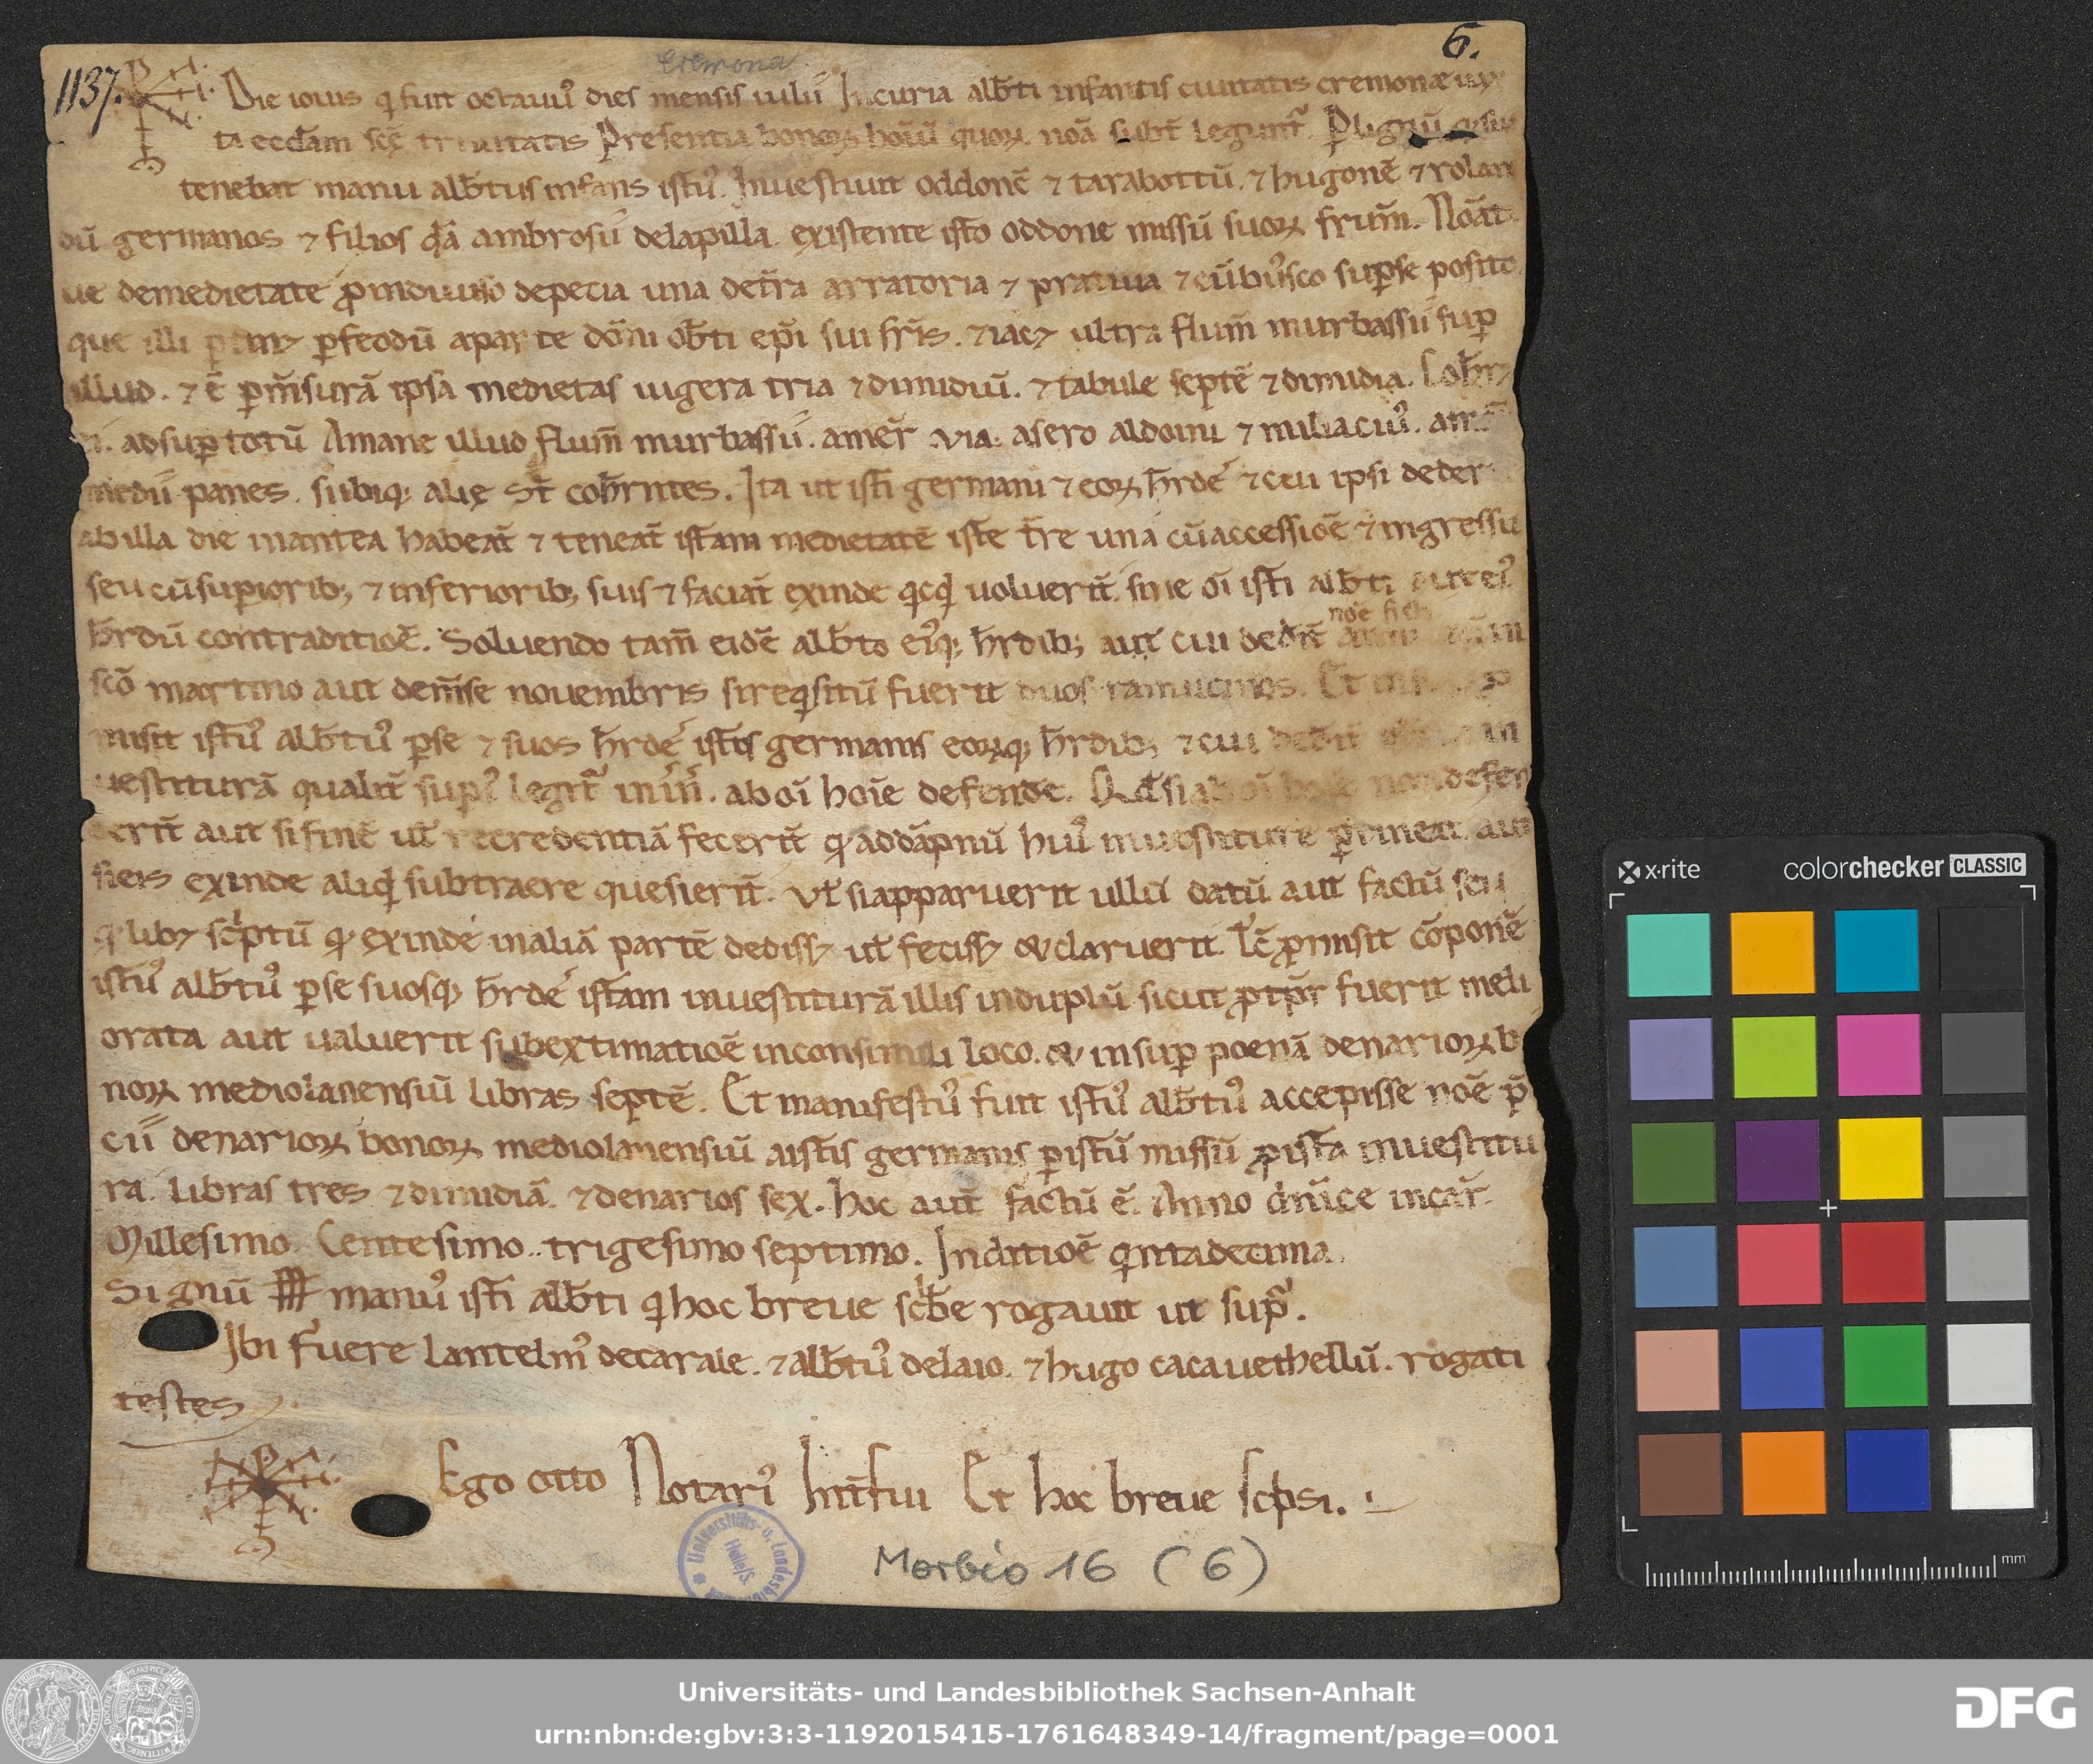 Cremona
6.
1137.
Die iouis q̇ fuit octauuꝰ dies mensis iulii Incuria alb̄ti infantis ciuitatis cremonę iux
ta eccl̄am sc̄ę trinitatis Presentia bonoꝝ hoīū quoꝝ noā subt̄ legunt̄. ꝑlignū
tenebat manu alb̄tus infans istꝰ. Inuestiuit oddonē ⁊ tarabottū. ⁊ hugonē ⁊ rolan
dū germanos ⁊ filios q̄dā ambrosii delapilla. existente isto oddone missū suoꝝ fr̄um. Noāt
ue demedietate ꝓindiuiso depecia una det̄ra arratoria ⁊ pratiua ⁊ cū buꝰsco suꝑse posito
que illi ꝑfeodū aparte dōni ob̄ti ep̄i sui fr̄is. ⁊ iacꝫ ultra flum̄ murbassii suꝑ
illud. ⁊ ē ꝑm̄surā ipsa medietas iugera tria ⁊ dimidiū. ⁊ tabule septē ⁊ dimidia. Coh̄rꝫ
ei. adsuꝑtotū Amane illud flum̄ murbassii. amer̄ via. asero aldoini ⁊ miliaciuꝰ.
panes. subiqꝫ alię st̄ coh̄rntes. Ita ut isti germani ⁊ eoꝝ h̄rdeˢ ⁊ ceu ipsi deder
abilla die inantea habeat̄ ⁊ teneat̄ istam medietatē iste t̄re una cūaccessiōe ⁊ ingressu
seu cūsuꝑiorib; ⁊ inferiorib; suis ⁊ faciat̄ exinde q̇cq̇d uoluerit̄. sine oī isti alb̄ti aut eiꝰ
h̄rdū contraditiōe. Soluendo tam̄ eidē alb̄to eiꝰqꝫ h̄rdib; aut cui dedit̄ noē ficti
sc̄o martino aut dem̄se nouembris sireq̇situ fuerit duos ramucinos. Et
misit istꝰ alb̄tꝰ ꝑse ⁊ suos h̄rdeˢ istis germanis eoꝝqꝫ h̄rdib; ⁊ cui in
uestiturā qualit̄ sup̄ˢ legit̄ aboī hoīe defende. Qd̄ siaboī hoīe non defen
derit̄ aut sifinē ut̄ recredentiā fecerit̄ q̇ addāpnū huiꝰ inuestiture ꝑtineat aut
sieis exinde aliq̇d subtraere quesierit̄. Ut̄ siapparuerit ullū datū aut factū seu
q̇libꝫ sc̄ptū q̇ exinde inaliā partē dedissꝫ ut̄ fecissꝫ & claruerit. Tc̄ ꝓmisit cōponē
istꝰ alb̄tꝰ ꝑse suosqꝫ h̄rdeˢ istam inuestiturā illis induplū sicut ꝓtp̄r fuerit meli
orata aut ualuerit subextimatiōe inconsimili loco. & insuꝑ poenā denarioꝝ b
noꝝ mediolanensiū libras septē. Et manifestꝰ fuit istꝰ alb̄tꝰ accepisse noē p̄
cii denarioꝝ bonoꝝ mediolanensiū aistis germanis ꝑistū missū ꝓista inuestitu
ra. Libras tres ⁊ dimidiā. ⁊ denarios sex. hoc aut̄ factū ē. Anno dn̄ice incar̄.
Millesimo. Centesimo. trigesimo septimo. Inditiōe q̇ntadecima.
Signū manuꝰ isti alb̄ti q̇ hoc breue scb̄e rogauit ut supᵃ.
Ibi fuere Lantelmꝰ decarale. ⁊ alb̄tꝰ delaio. ⁊ hugo cacauethellū. rogati
testes.
Ego otto Notariꝰ Int̄fui Et hoc breue scpsi.
Universitäts- u. Landesbibliothek Halle/S.
Morbio 16 (6)
x·rite colorchecker CLASSIC
mm
Universitäts- und Landesbibliothek Sachsen-Anhalt
urn:nbn:de:gbv:3:3-1192015415-1761648349-14/fragment/page=0001
DFG